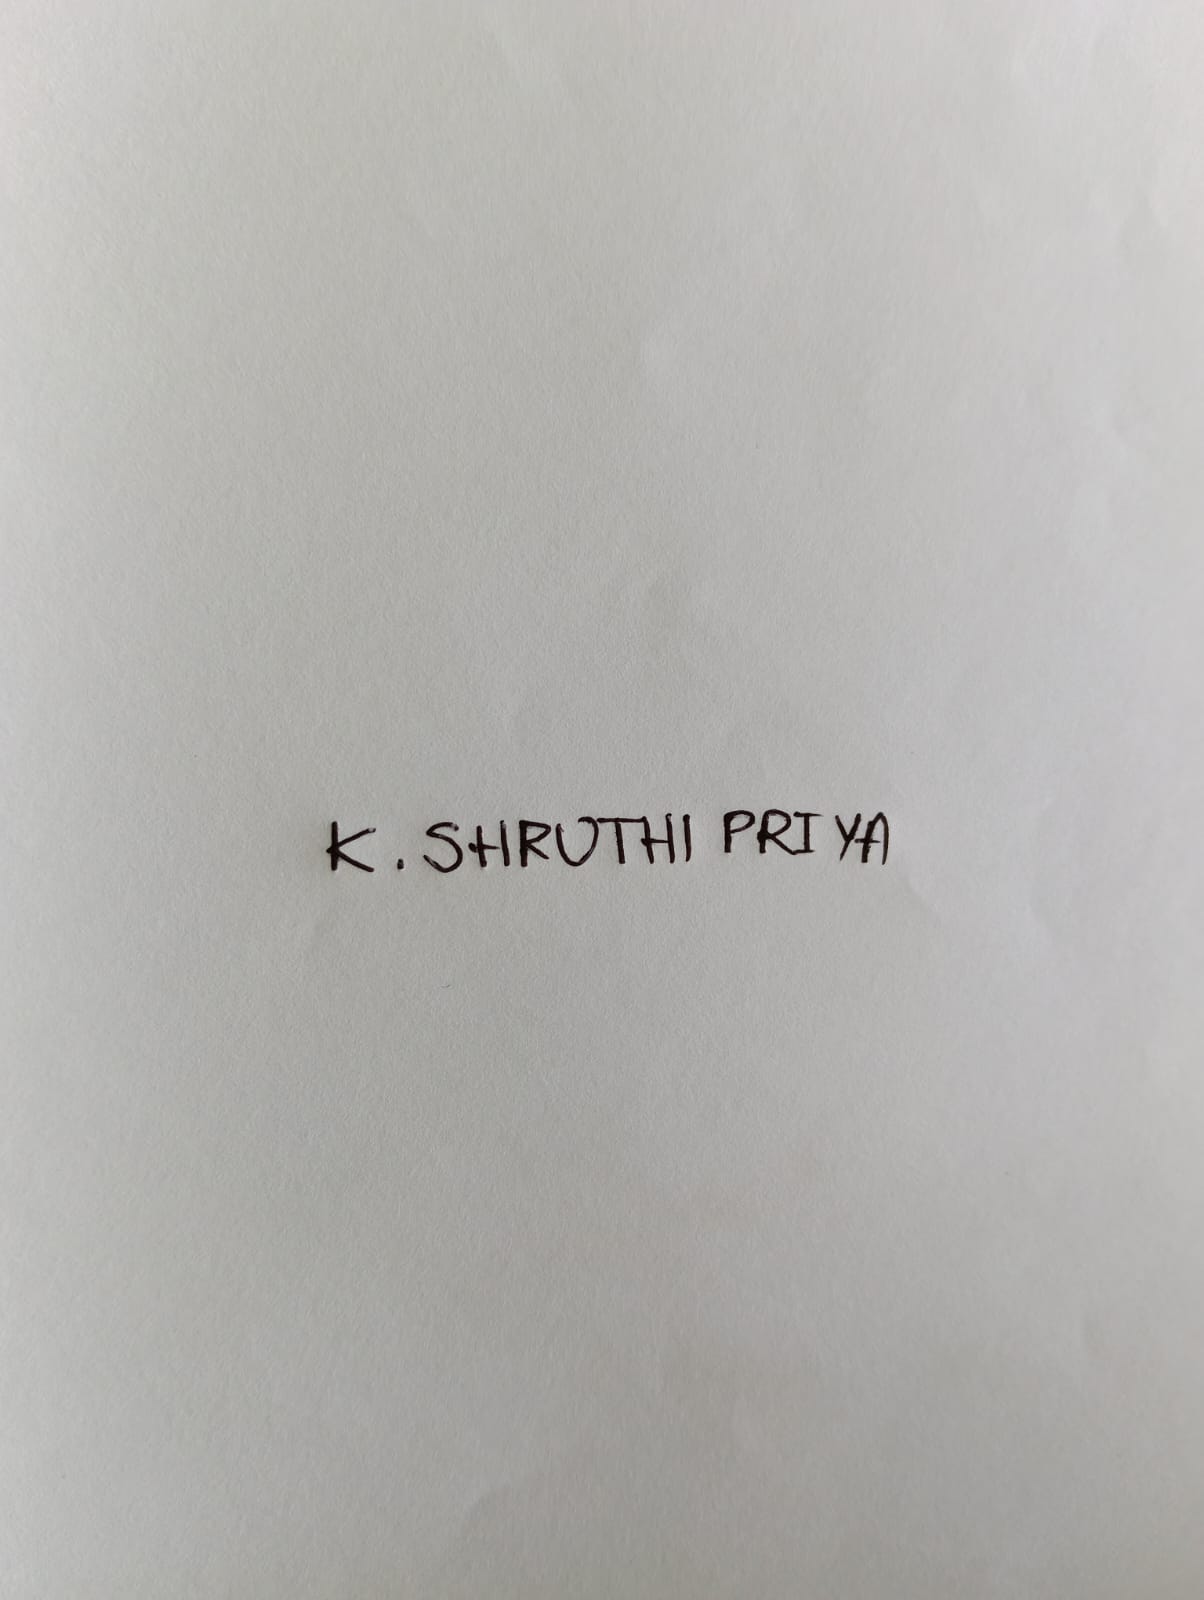 K. SHRUTHI PRIYA